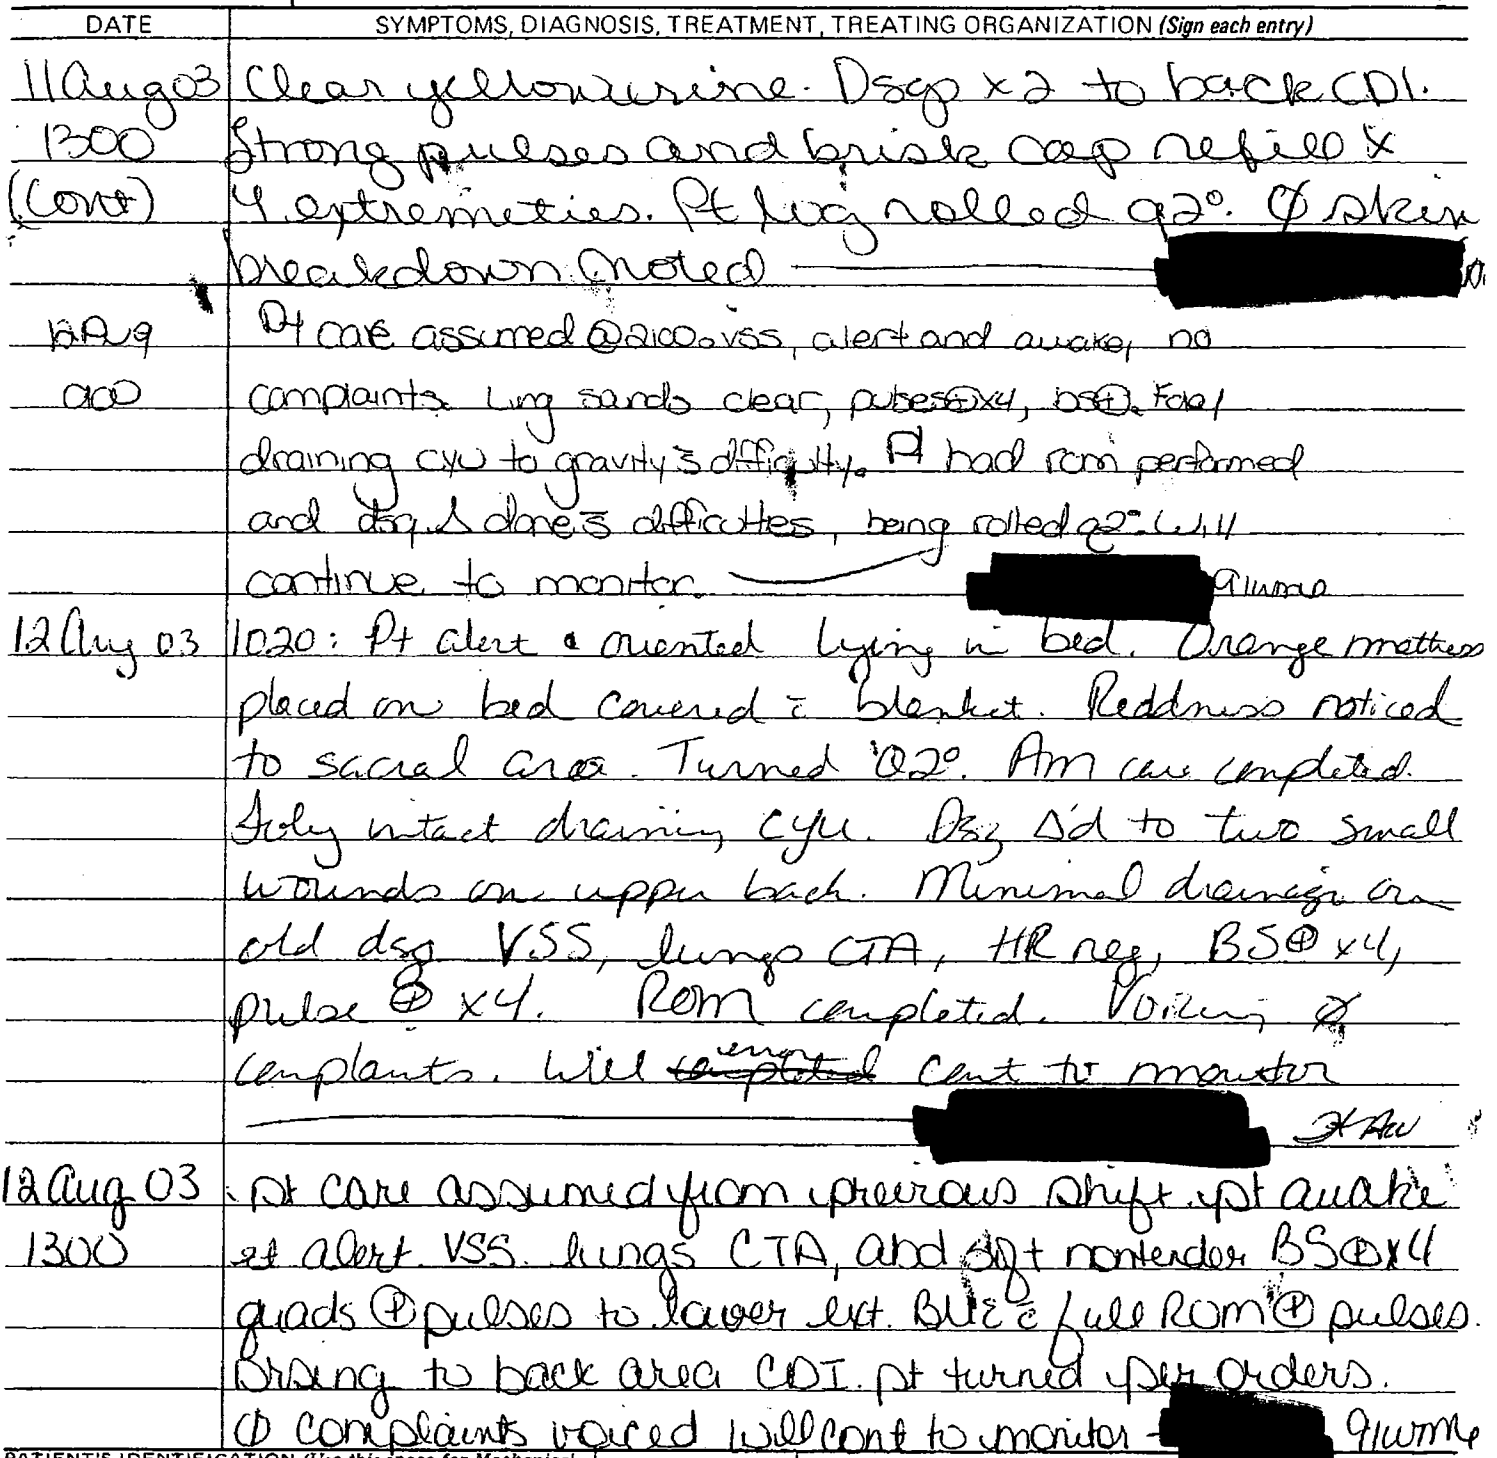 DATE SYMPTOMS, DIAGNOSIS, TREATMENT, TREATING ORGANIZATION (Sign each entry)
11 Aug 03 Clear yellow urine. Dsgs x2 to back CDI.
1300 Strong pulses and brisk cap refill x
(Cont) 4 extremeties. Pt log rolled q2°. Ø skin
breakdown noted
12Aug Pt care assumed @2100. VSS, alert and awake, no
complaints. Lung sounds clear, pulses⊕x4, bs⊕. Foley
draining CYU to gravity s̄ difficulty. Pt had rom performed
and dsg Δ done s̄ difficulties, being rolled q2° Will
continue to monitor. 91wm6
12 Aug 03 1020: Pt alert & oriented lying in bed. Orange mattress
placed on bed covered c̄ blanket. Reddness noticed
to sacral area. Turned Q2°. Am care completed.
Foley intact draining CYU. Dsg Δ'd to two small
wounds on upper back. Minimal drainage on
old dsg VSS, lungs CTA, HR reg, BS⊕ x4,
pulse ⊕ x4. ROM completed. Voicing Ø
complaints. Will completed error cont to monitor
12 Aug 03 pt care assumed from previous shift. pt awake
1300 et alert. VSS. lungs CTA, abd soft nontender BS⊕x4
quads ⊕ pulses to lower ext. BUE c̄ full ROM ⊕ pulses.
Drsing to back area CDI. pt turned per orders.
Ø complaints voiced will cont to monitor 91wm6
PATIENT'S IDENTIFICATION (Use this space for Mechanical